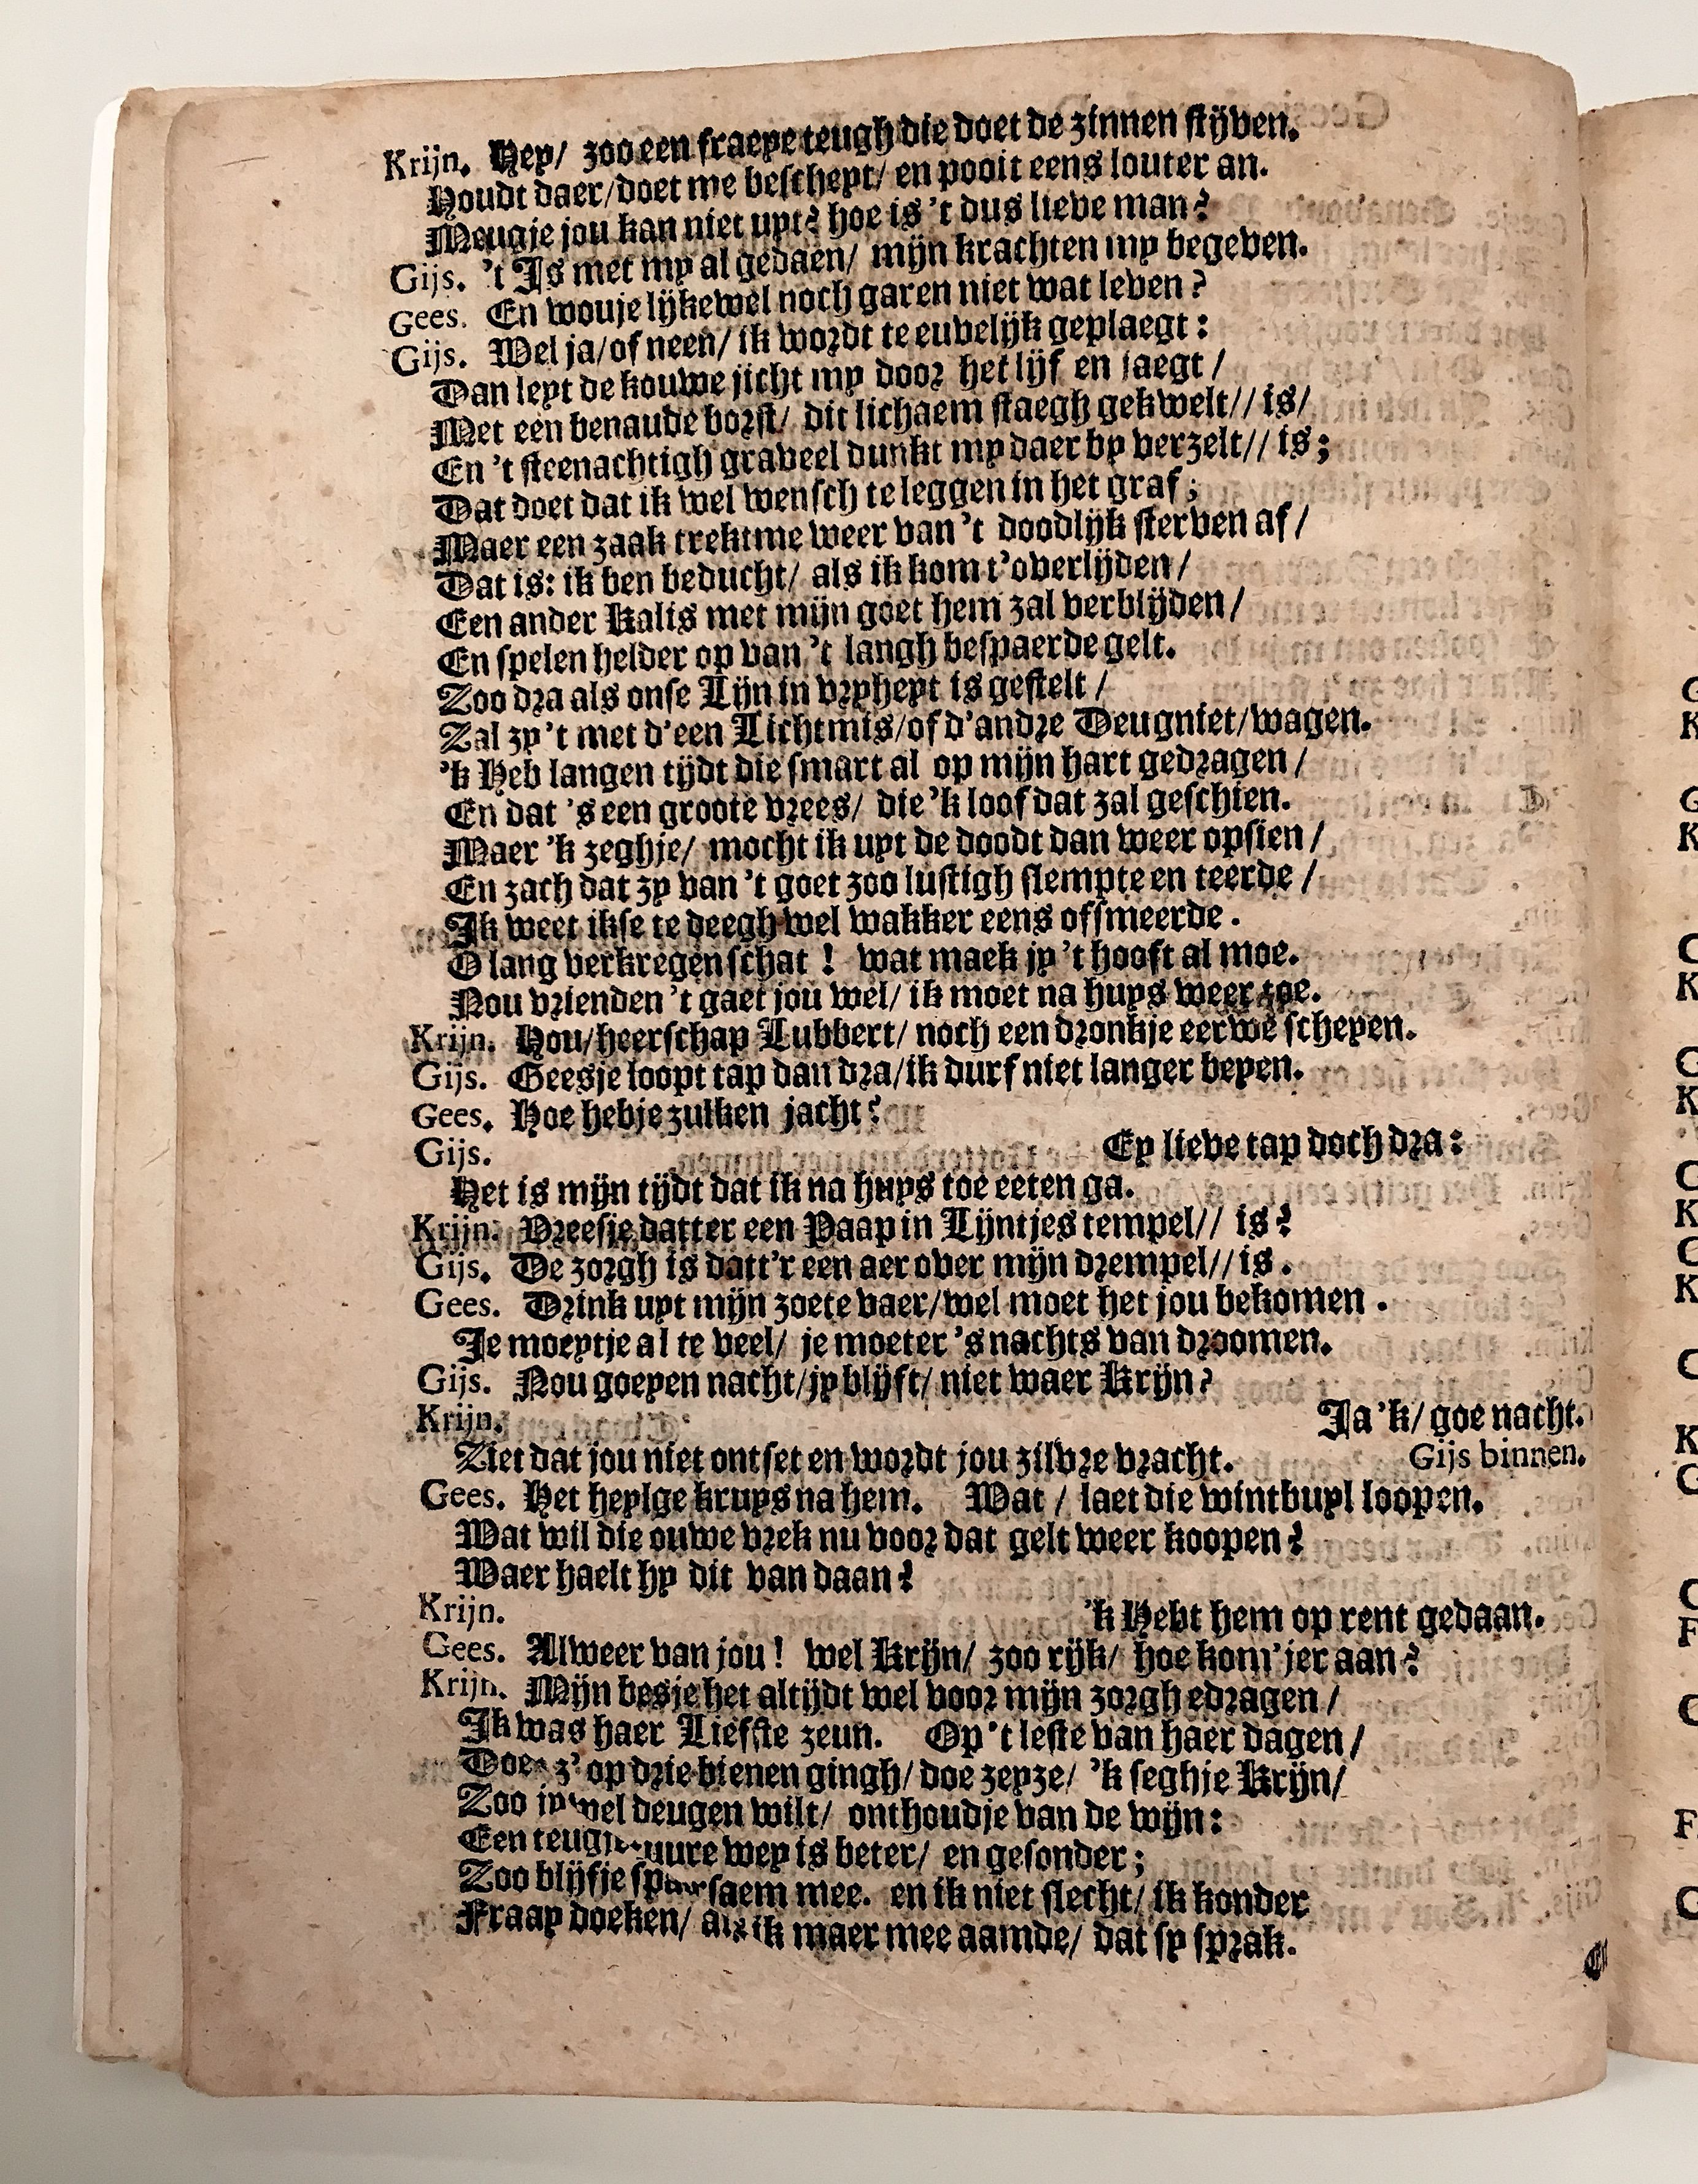 Krijn. Hey/ zoo een fraeye teugh die doet de zinnen stijven.
Houdt daer/doet me bescheyt/ en pooit eens louter an.
Meugje jou kan niet uyt? hoe is 't dus lieve man?
Gijs. 't Is met my al gedaen/ mijn krachten my begeven.
Gees. En wouje lijkewel noch garen niet wat leven?
Gijs. Wel ja/of neen/ ik wordt te euvelijk geplaegt:
Dan leyt de kouwe jicht my door het lijf en jaegt/
Met een benaude borst/ dit lichaem staegh gekwelt// is/
En 't steenachtigh graveel dunkt my daer by verzelt// is;
Dat doet dat ik wel wensch te leggen in het graf;
Maer een zaak trektme weer van 't doodlijk sterven af/
Dat is: ik ben beducht/ als ik kom t'overlijden/
Een ander Kalis met mijn goet hem zal verblijden/
En spelen helder op van 't langh bespaerde gelt.
Zoo dra als onse Lijn in vryheyt is gestelt/
Zal zy 't met d'een Lichtmis/of d'andre Deugniet/wagen.
'k Heb langen tijdt die smart al op mijn hart gedragen/
En dat 's een groote vrees/ die 'k loof dat zal geschien.
Maer 'k zeghje/ mocht ik uyt de doodt dan weer opsien/
En zach dat zy van 't goet zoo lustigh slempte en teerde/
Ik weet ikse te deegh wel wakker eens ofsmeerde.
O lang verkregen schat! wat maek jy 't hooft al moe.
Nou vrienden 't gaet jou wel/ ik moet na huys weer toe.
Krijn. Hou/heerschap Lubbert/ noch een dronkje eer we scheyen.
Gijs. Geesje loopt tap dan dra/ik durf niet langer beyen.
Gees. Hoe hebje zulken jacht?
Gijs. Ey lieve tap doch dra:
Het is mijn tijdt dat ik na huys toe eeten ga.
Krijn. Vreesje datter een Paap in Lijntjes tempel// is?
Gijs. De zorgh is datt'r een aer over mijn drempel// is.
Gees. Drink uyt mijn zoete vaer/wel moet het jou bekomen.
Je moeytje al te veel/ je moeter 's nachts van droomen.
Gijs. Nou goeyen nacht/jy blijft/ niet waer Krijn?
Krijn. Ja 'k/ goe nacht.
Ziet dat jou niet ontset en wordt jou zilvre vracht. Gijs binnen.
Gees. Het heylge kruys na hem. Wat/ laet die wintbuyl loopen.
Wat wil die ouwe vrek nu voor dat gelt weer koopen?
Waer haelt hy dit van daan?
Krijn. 'k Hebt hem op rent gedaan.
Gees. Alweer van jou! wel Krijn/ zoo rijk/ hoe kom'jer aan?
Krijn. Mijn besje het altijdt wel voor mijn zorgh edragen/
Ik was haer Liefste zeun. Op 't leste van haer dagen/
Doen z' op drie bienen gingh/ doe zeyze/ 'k seghje Krijn/
Zoo jy wel deugen wilt/ onthoudje van de wijn:
Een teugje zuure wey is beter/ en gesonder;
Zoo blijfje spaersaem mee. en ik niet slecht/ ik konder
Fraay doeken/ als ik maer mee aamde/ dat sy sprak.